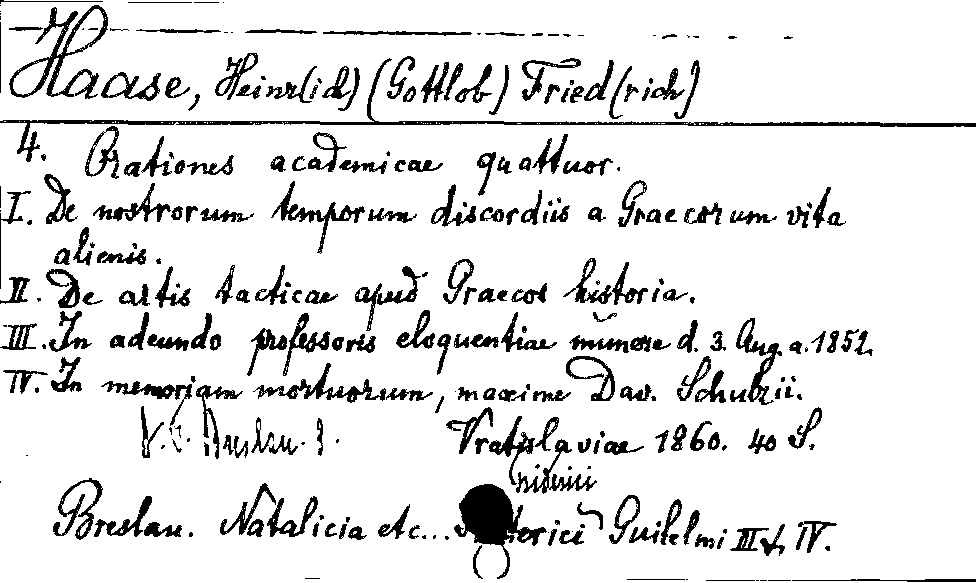 Haase, Heinr(ich) (Gottlob) Fried(rich)
4. Orationes academicae quattuor.
I. De nostrorum temporum discordiis a Graecorum vita
alienis.
II. De artis tacticae apud Graecos historia.
III. In adeundo professoris eloquentiae munere d. 3. Aug. a. 1852.
IV. In memoriam mortuorum, maxime Dav. Schulzii.
Vratislaviae 1860. 40 S.
Breslau. Natalicia etc... Guilelmi III et IV.